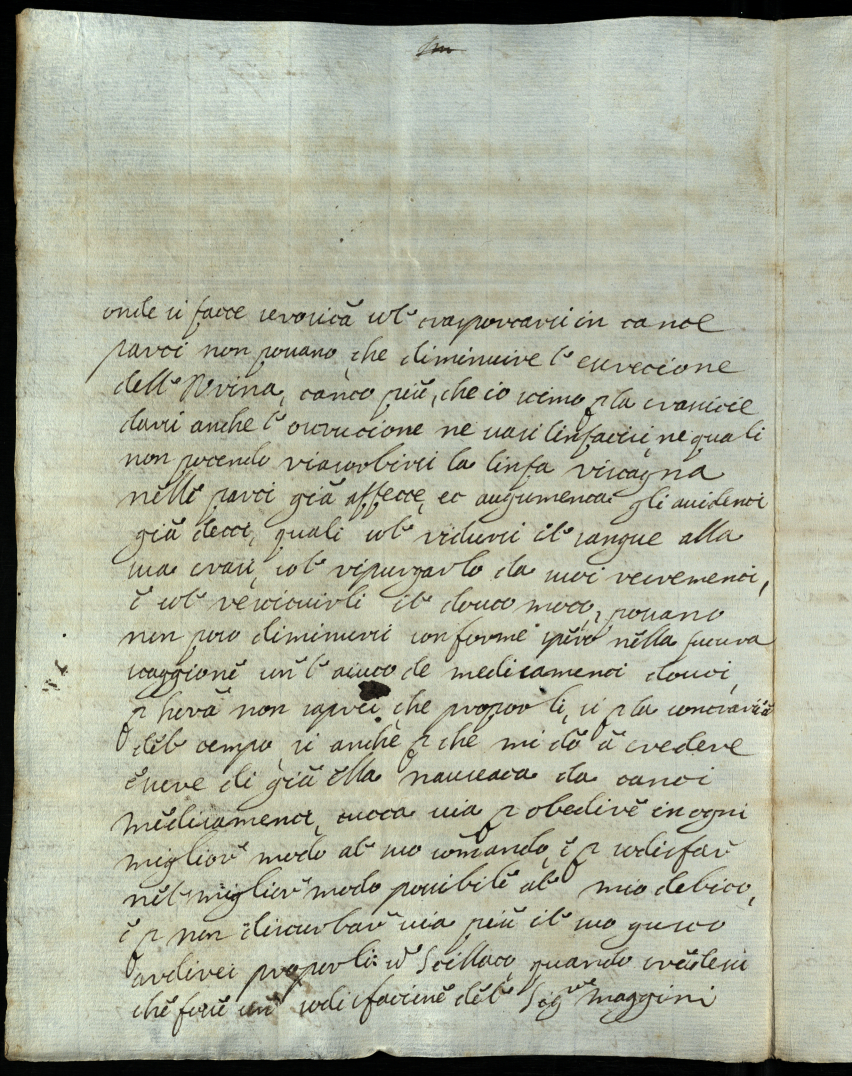 onde si facce serosità col trasportarsi in tante
parti non possano, che diminuire l'escretione
dell'Orina, tanto più, che io stimo p la
darsi anche l'ostrutione ne vasi linfatici, ne quali
non potendo riassorbirsi la linfa ristagna
nelle parti già affette, et augumenta gli accidenti
già detti, quali col ridursi il sangue alla
sua crasi, col ripurgarlo da suoi recrementi,
è col restituirli il douto moto, possano
non poco diminuirsi conforme spero nella futura
staggione con l'aiuto de medicamenti douti,
p hora non saprei che proporli, si p la contrarietà
del tempo, si anche p che mi dò à credere
essere di già ella nauseata da tanti
medicamenti, tutta uia p obedire in ogni
miglior modo al suo comando, è p sodisfar
nel miglior modo possibile al mio debito,
è p non disturbar uia più il suo gusto
ardirei proporli: quando credessi
che fosse con sodisfatione del Sig.re Maggini